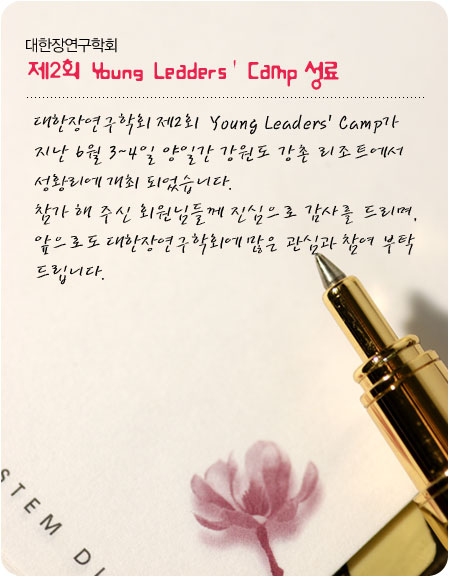 대한장연구학회
제2회 Young Leaders' Camp 성료
대한장연구학회 제2회 Young Leaders' Camp가
지난 6월 3~4일 양일간 강원도 강촌 리조트에서
성황리에 개최 되었습니다.
참가 해 주신 회원님들께 진심으로 감사를 드리며,
앞으로도 대한장연구학회에 많은 관심과 참여 부탁
드립니다.
STEM DI